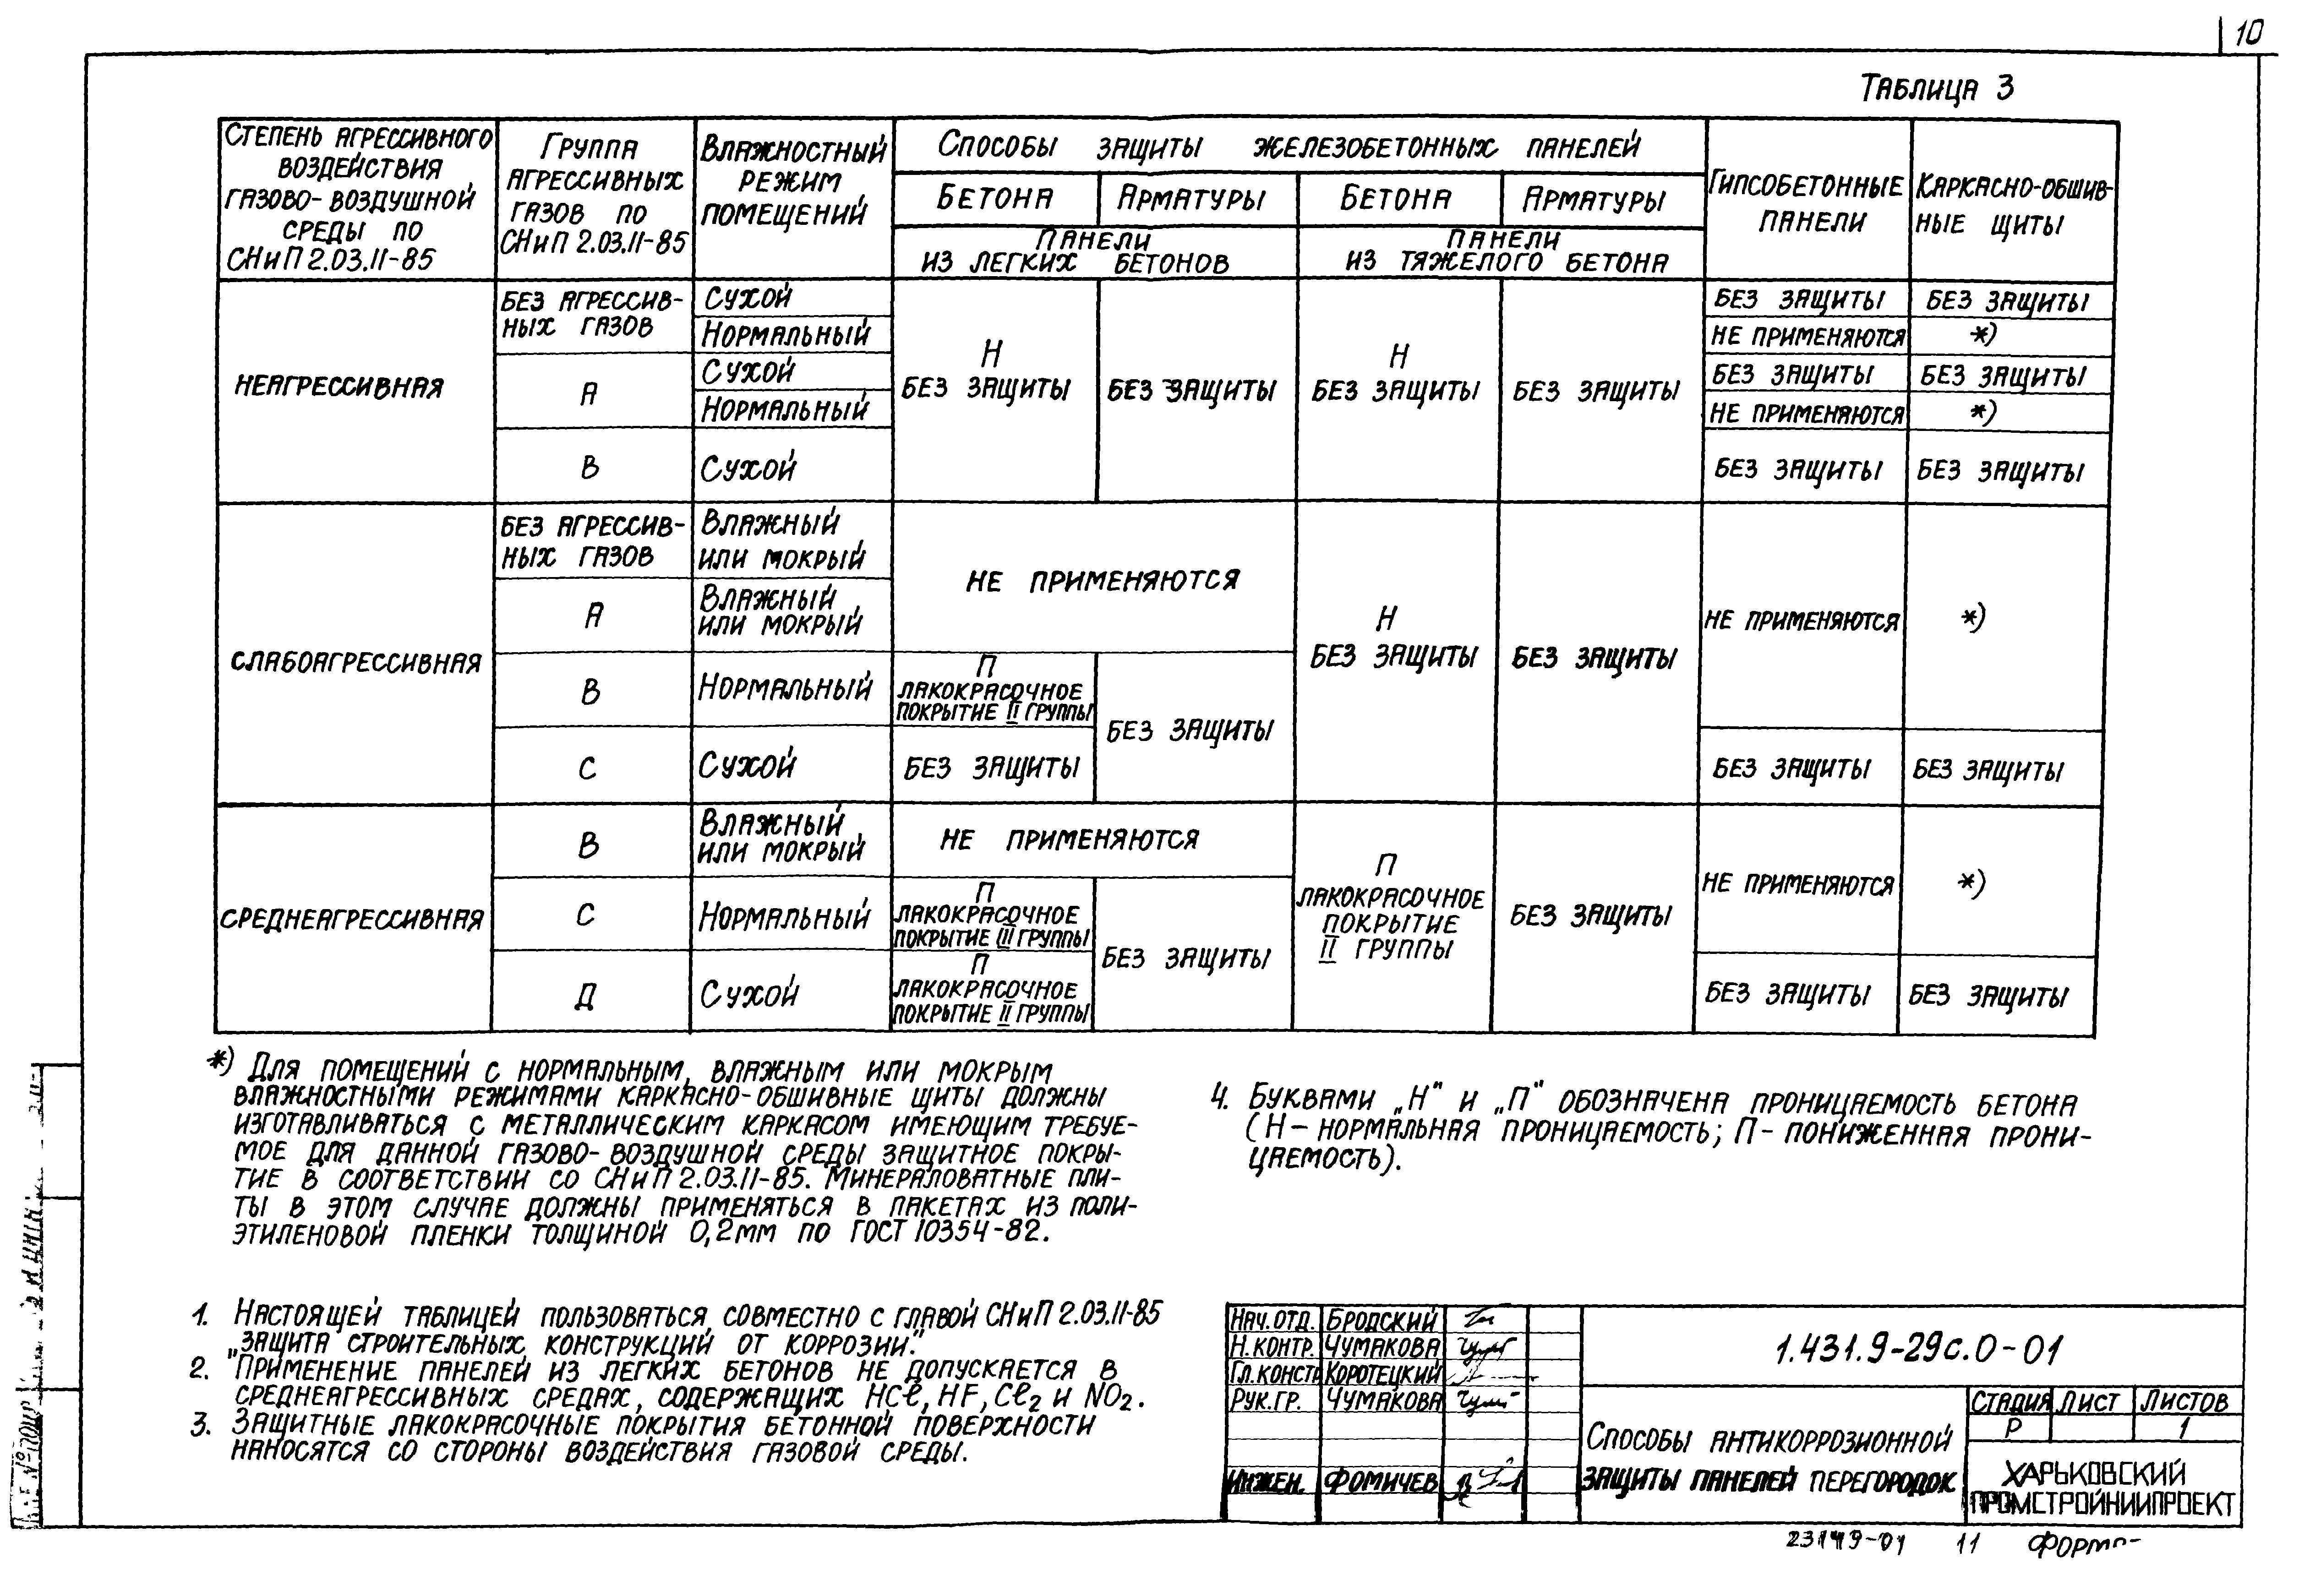 10
Таблица 3
Степень агрессивного
воздействия
газово-воздушной
среды по
СНиП 2.03.11-85
Группа
агрессивных
газов по
СНиП 2.03.11-85
Влажностный
режим
помещений
Способы защиты железобетонных панелей
Бетона
Арматуры
Бетона
Арматуры
Панели
из легких бетонов
Панели
из тяжелого бетона
Гипсобетонные
панели
Каркасно-обшив-
ные щиты
Неагрессивная
Без агрессив-
ных газов
Сухой
Нормальный
А
Сухой
Нормальный
В
Сухой
Н
Без защиты
Без защиты
Н
Без защиты
Без защиты
Без защиты
Без защиты
Не применяются
*)
Без защиты
Без защиты
Не применяются
*)
Без защиты
Без защиты
Слабоагрессивная
Без агрессив-
ных газов
Влажный
или мокрый
А
Влажный
или мокрый
Не применяются
В
Нормальный
П
лакокрасочное
покрытие II группы
С
Сухой
Без защиты
Без защиты
Н
Без защиты
Без защиты
Не применяются
*)
Без защиты
Без защиты
Среднеагрессивная
В
Влажный
или мокрый
Не применяются
С
Нормальный
П
лакокрасочное
покрытие III группы
Д
Сухой
П
лакокрасочное
покрытие II группы
Без защиты
П
лакокрасочное
покрытие
II группы
Без защиты
Не применяются
*)
Без защиты
Без защиты
*) Для помещений с нормальным, влажным или мокрым
влажностными режимами каркасно-обшивные щиты должны
изготавливаться с металлическим каркасом имеющим требуе-
мое для данной газово-воздушной среды защитное покры-
тие в соответствии со СНиП 2.03.11-85. Минераловатные пли-
ты в этом случае должны применяться в пакетах из поли-
этиленовой пленки толщиной 0,2мм по ГОСТ 10354-82.
1. Настоящей таблицей пользоваться совместно с главой СНиП 2.03.11-85
„Защита строительных конструкций от коррозии".
2. Применение панелей из легких бетонов не допускается в
среднеагрессивных средах, содержащих HCl, HF, Cl₂ и NO₂.
3. Защитные лакокрасочные покрытия бетонной поверхности
наносятся со стороны воздействия газовой среды.
4. Буквами „Н" и „П" обозначена проницаемость бетона
(Н – нормальная проницаемость; П – пониженная прони-
цаемость).
Нач. отд. Бродский
Н. контр. Чумакова
Гл. констр. Коротецкий
Рук. гр. Чумакова
Инжен. Фомичев
1.431.9-29с.0-01
Способы антикоррозионной
защиты панелей перегородок
Стадия Лист Листов
Р 1
Харьковский
Промстройниипроект
23149-01 11